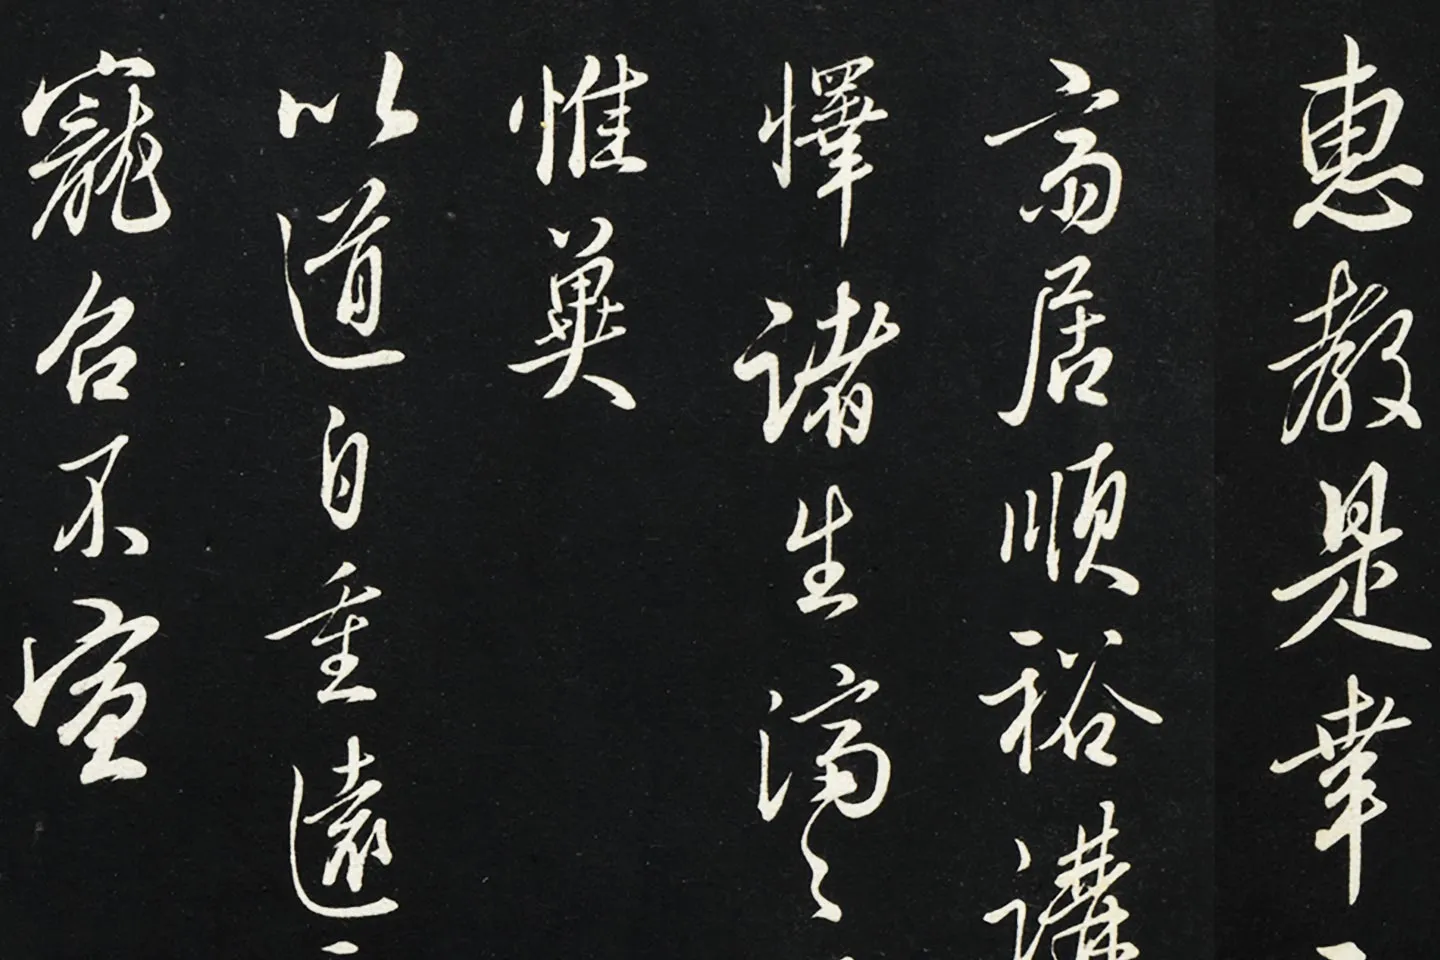 惠教是幸
齋居順裕講
懌諸生濟〻
惟冀
以道自重遠
寵召不宣